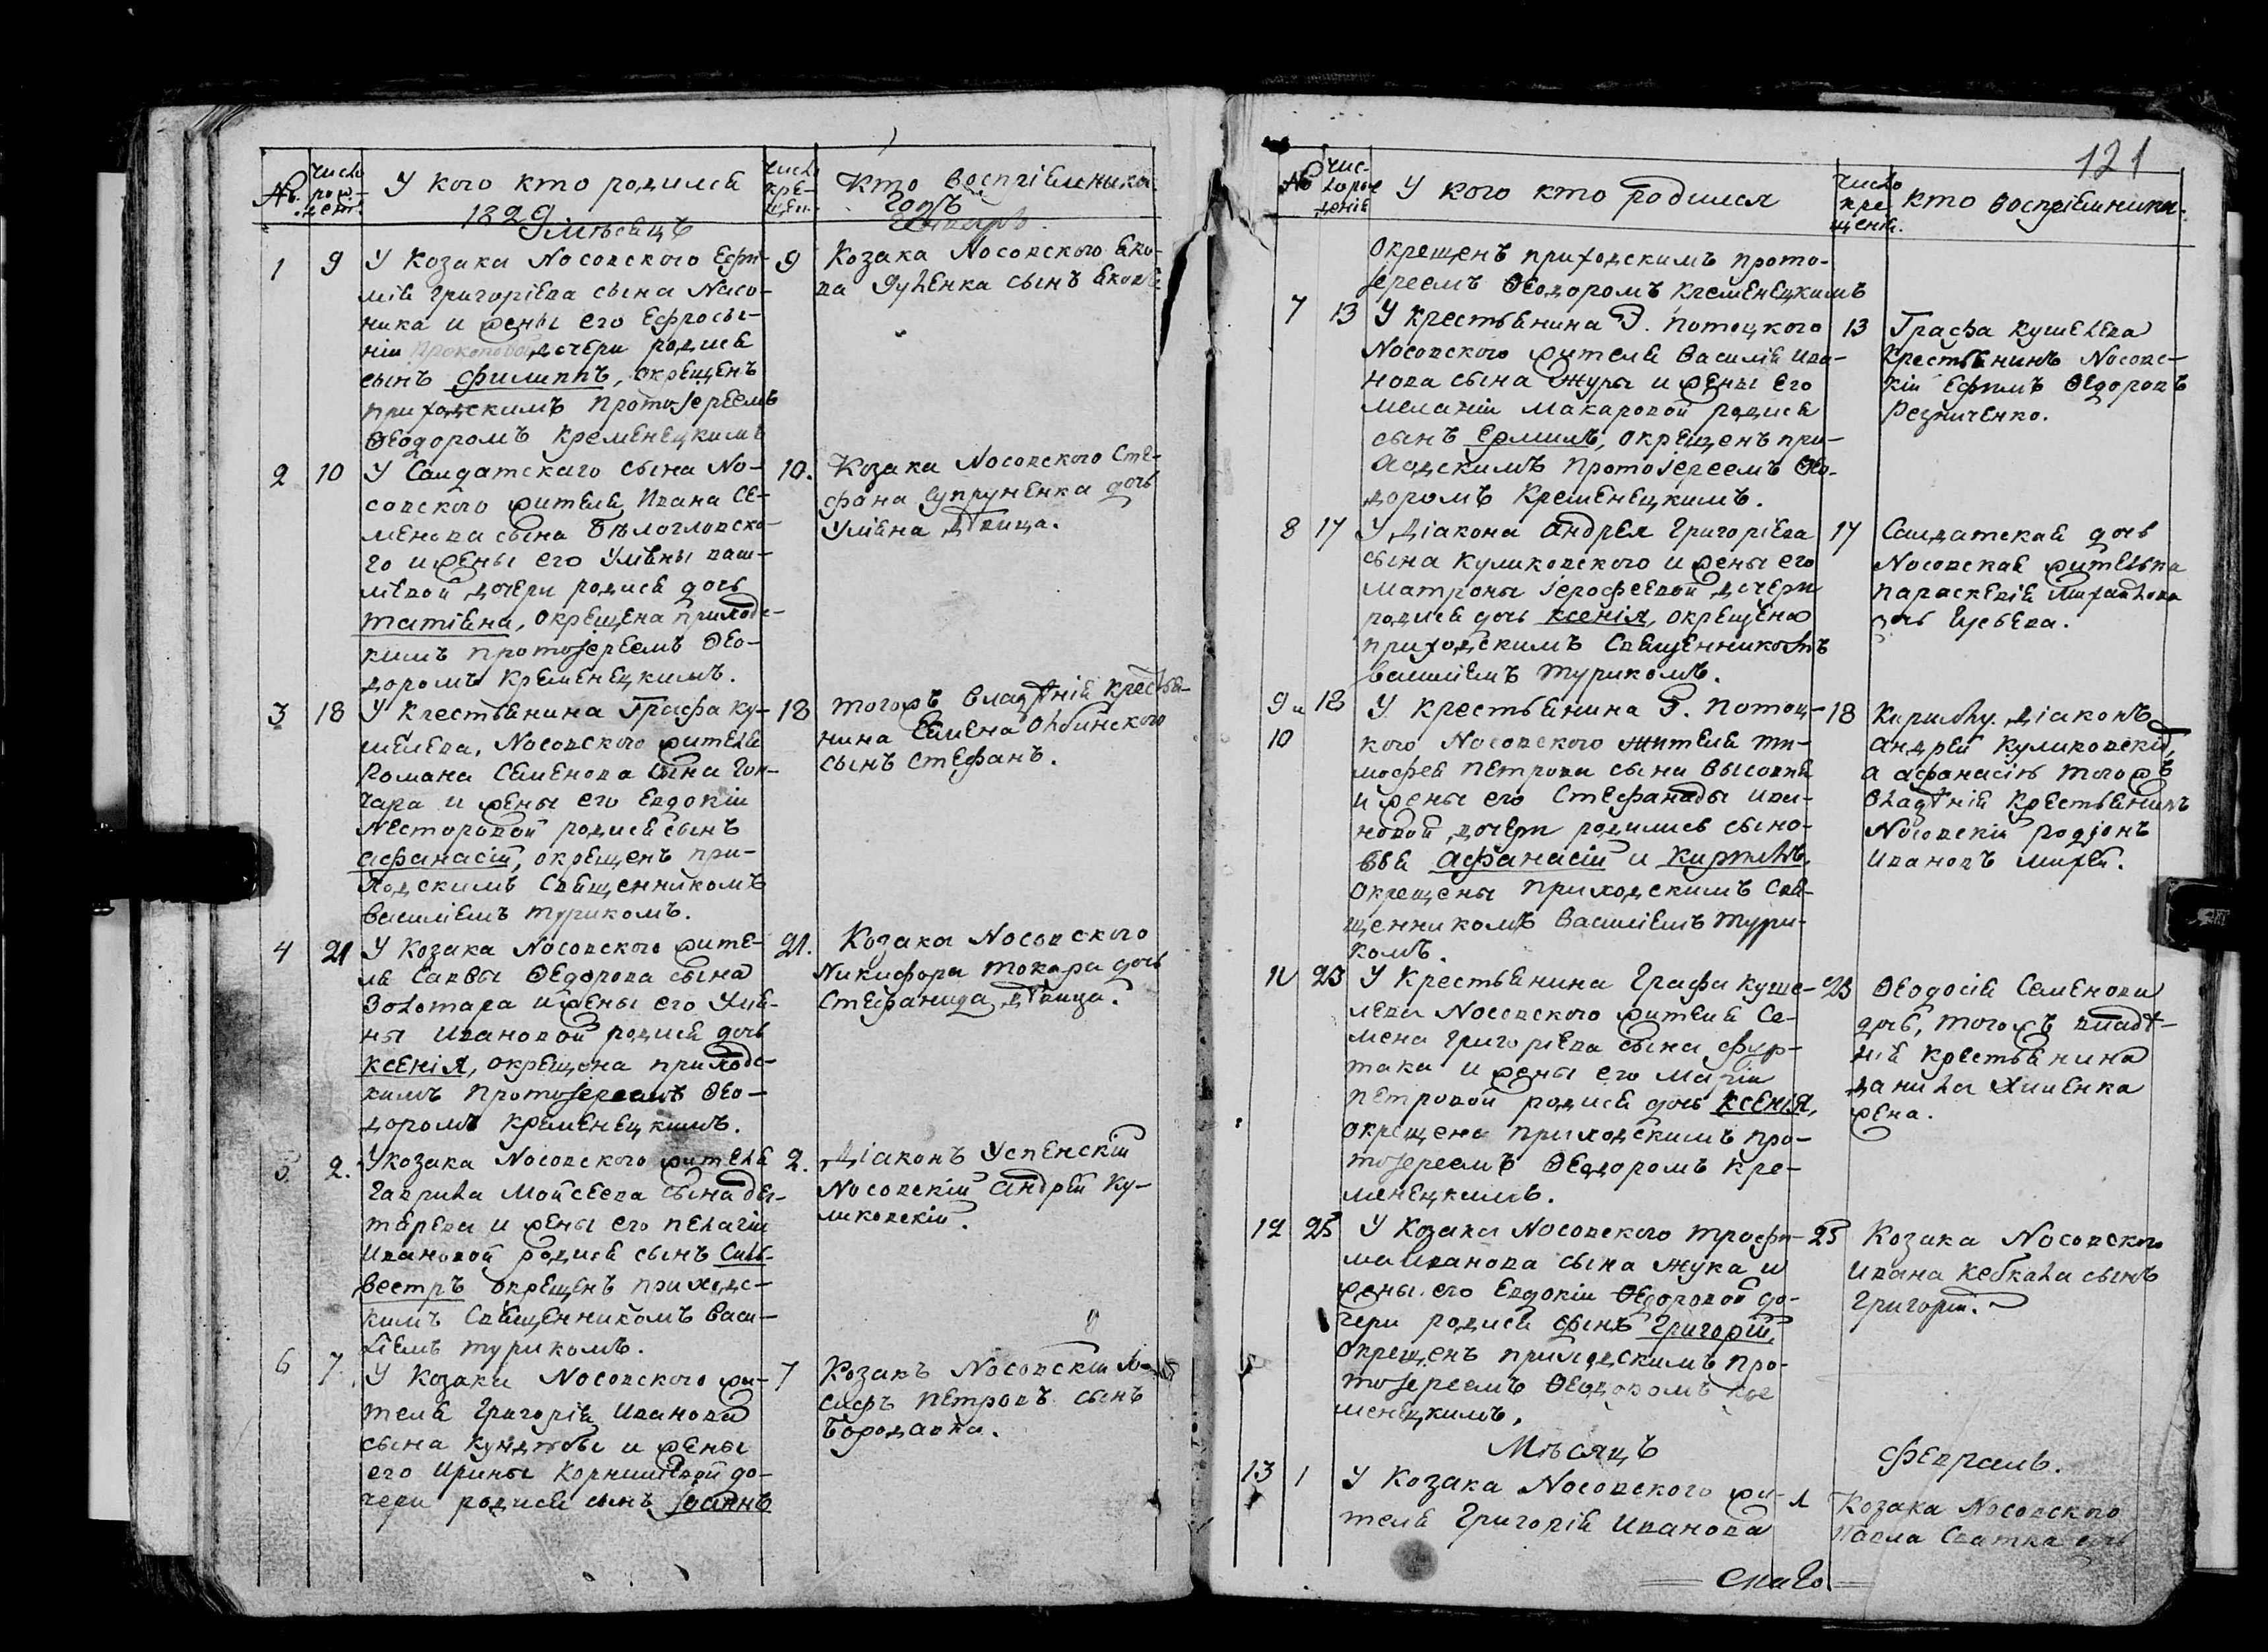 №. Число рож-дет.
У кого кто родился
Число кре-щен.
Кто воспріемники
1829
Годъ
Мѣсяцъ
Генваръ.
1 9 У Козака Носовского Ефи-
мія Григоріева сына Насо-
ника и жены его Ефросы-
ніи Прокоповой дочери родися
сынъ Филиппъ, окрещенъ
приходскимъ Протоіереемъ
Ѳеодоромъ Кременецкимъ
9 Козака Носовского Яко-
ва сынъ Яковъ
2 10 У Салдатскаго сына Но-
совского жителя Ивана Се-
менова сына Бѣлогловско-
го и жены его Уліяны
дочери родися дочь
Татіяна, окрещена приходс-
кимъ протоіереемъ Ѳео-
доромъ Кременецкимъ.
10. Козака Носовского Сте-
фана Супруненка дочь
Уліяна дѣвица.
3 18 У Крестьянина Графа Ку-
шелева, Носовского жителя
Романа Семенова сына Гон-
чара и жены его Евдокіи
Несторовой родися сынъ
Афанасій, окрещенъ при-
ходскимъ Священникомъ
Василіемъ Туриком​ъ.
18 Тогожъ владѣнія Крестья-
нина Семена Олбинского
сынъ Стефанъ.
4 21 У Козака Носовского жите-
ля Саввы Ѳедорова сына
Золотара и жены его Улія-
ны Ивановой родися дочь
Ксенія, окрещена приходс-
кимъ Протоіереемъ Ѳео-
доромъ Кременецкимъ.
21. Козака Носовского
Никифора Токара дочь
Стефанида дѣвица.
5 2. У козака Носовского жителя
Гаврила Мойсеева сына Дег-
тярева и жены его Пелагіи
Ивановой родися сынъ Силь-
вестръ окрещенъ приходс-
кимъ Священникомъ Васи-
ліемъ Турикомъ.
2. Діаконъ Успенскій
Носовскій Андрей Ку-
ликовскій.
6 7. У Козака Носовского жи-
теля Григорія Иванова
сына Кундюбы и жены
его Ирины Корниліевой до-
чери родися сынъ Іоаннъ
7 Козакъ Носовскій Іо-
сифъ Петровъ сынъ
Бородавка.
121
№ Чис-ло рож-денія
У кого кто родился
Число кре-щенія.
Кто воспріемники.
Окрещенъ приходскимъ прото-
іереемъ Ѳеодоромъ Кременецкимъ
7 13 У Крестьянина Г. Потоцкого
Носовского жителя Василія Ива-
нова сына Журы и жены его
Меланіи Макаровой родися
сынъ Ермилъ, окрещенъ при-
ходскимъ Протоіереемъ Ѳео-
доромъ Кременецкимъ.
13 Графа Кушелева
Крестьянинъ Носовс-
кій Ефимъ Ѳедоровъ
Резниченко.
8 17 У Діакона Андрея Григоріева
сына Куликовского и жены его
Матроны Іерофеевой дочери
родися дочь Ксенія, окрещена
приходскимъ Священникомъ
Василіемъ Турикомъ.
17 Салдатская дочь
Носовская жителька
Параскевія Михайлова
дочь
9 и 18 У Крестьянина Г. Потоц-
10 кого Носовского жителя Ти-
мофея Петрова сына Высоцкя
и жены его Стефаниды Ива-
новой дочери родились сыно-
вья Афанасій и Кирилъ,
Окрещены приходскимъ Свя-
щенникомъ Василіемъ Тури-
комъ.
18 Кирилу. Діаконъ
Андрей Куликовскій,
а Афанасію тогожъ
владѣнія Крестьянинъ
Носовскій Родіонъ
Ивановъ Михей.
11 23 У Крестьянина Графа Куше-
лева Носовского жителя Се-
мена Григоріева сына Фур-
така и жены его Маріи
Петровой родися дочь Ксенія,
окрещена приходскимъ про-
тоіереемъ Ѳеодоромъ Кре-
менецкимъ.
23 Ѳеодосія Семенова
дочь, тогожъ владѣ-
нія Крестьянина
Данила Яшенка
жена.
12 25 У Козака Носовского Трофи-
ма Иванова сына Жука и
жены его Евдокіи Ѳедоровой до-
чери родися сынъ Григорій,
Окрещенъ приходскимъ Про-
тоіереемъ Ѳеодоромъ Кре
менецкимъ.
25 Козака Носовского
Ивана Кебкала сынъ
Григорій.
Мѣсяцъ
Февраль.
13 1 У Козака Носовского жи-
теля Григорія Иванова
1 Козака Носовского
Павла Сватка дочь